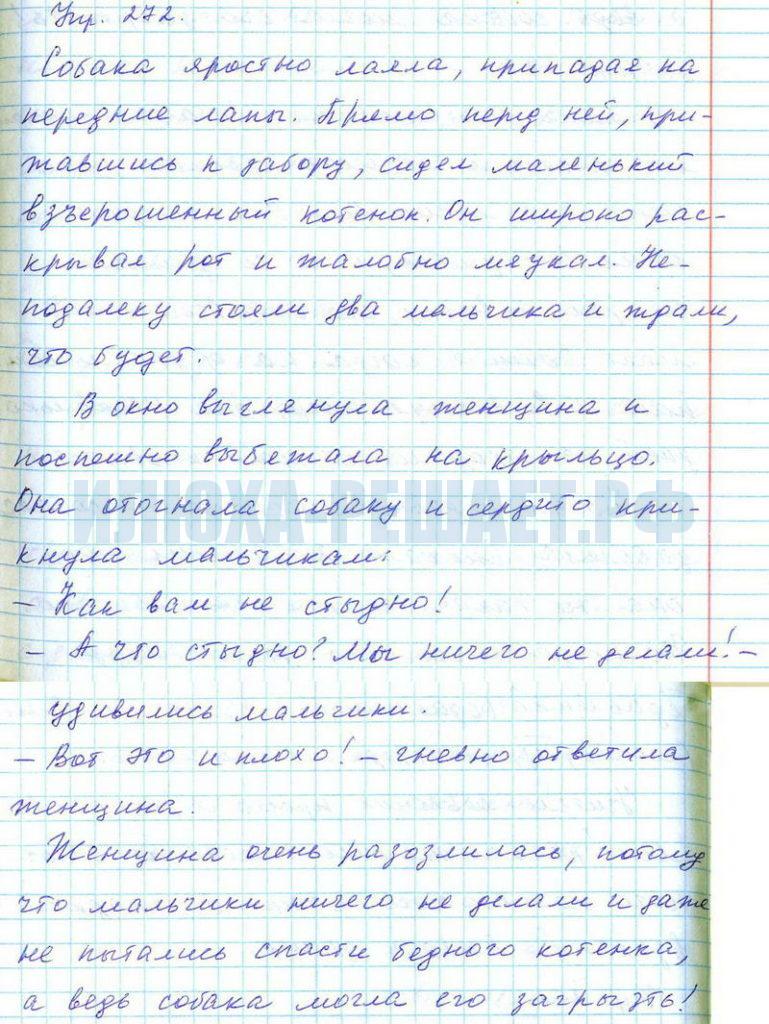 Упр. 272.
Собака яростно лаяла, припадая на
передние лапы. Прямо перед ней, при-
жавшись к забору, сидел маленький
взъерошенный котенок. Он широко рас-
крывал рот и жалобно мяукал. Не-
подалеку стояли два мальчика и ждали,
что будет.
В окно выглянула женщина и
поспешно выбежала на крыльцо.
Она отогнала собаку и сердито кри-
кнула мальчикам:
ИЛЮХА-РЕШАЕТ.РФ
- Как вам не стыдно!
- А что стыдно? Мы ничего не делали! -
удивились мальчики.
- Вот это и плохо! - гневно ответила
женщина.
Женщина очень разозлилась, потому
что мальчики ничего не делали и даже
не пытались спасти бедного котенка,
а ведь собака могла его загрызть!